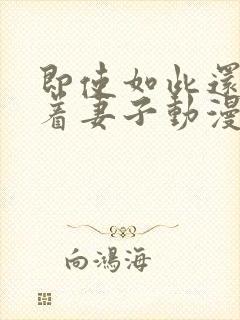 即使如此還
着妻子動漫
向鴻海